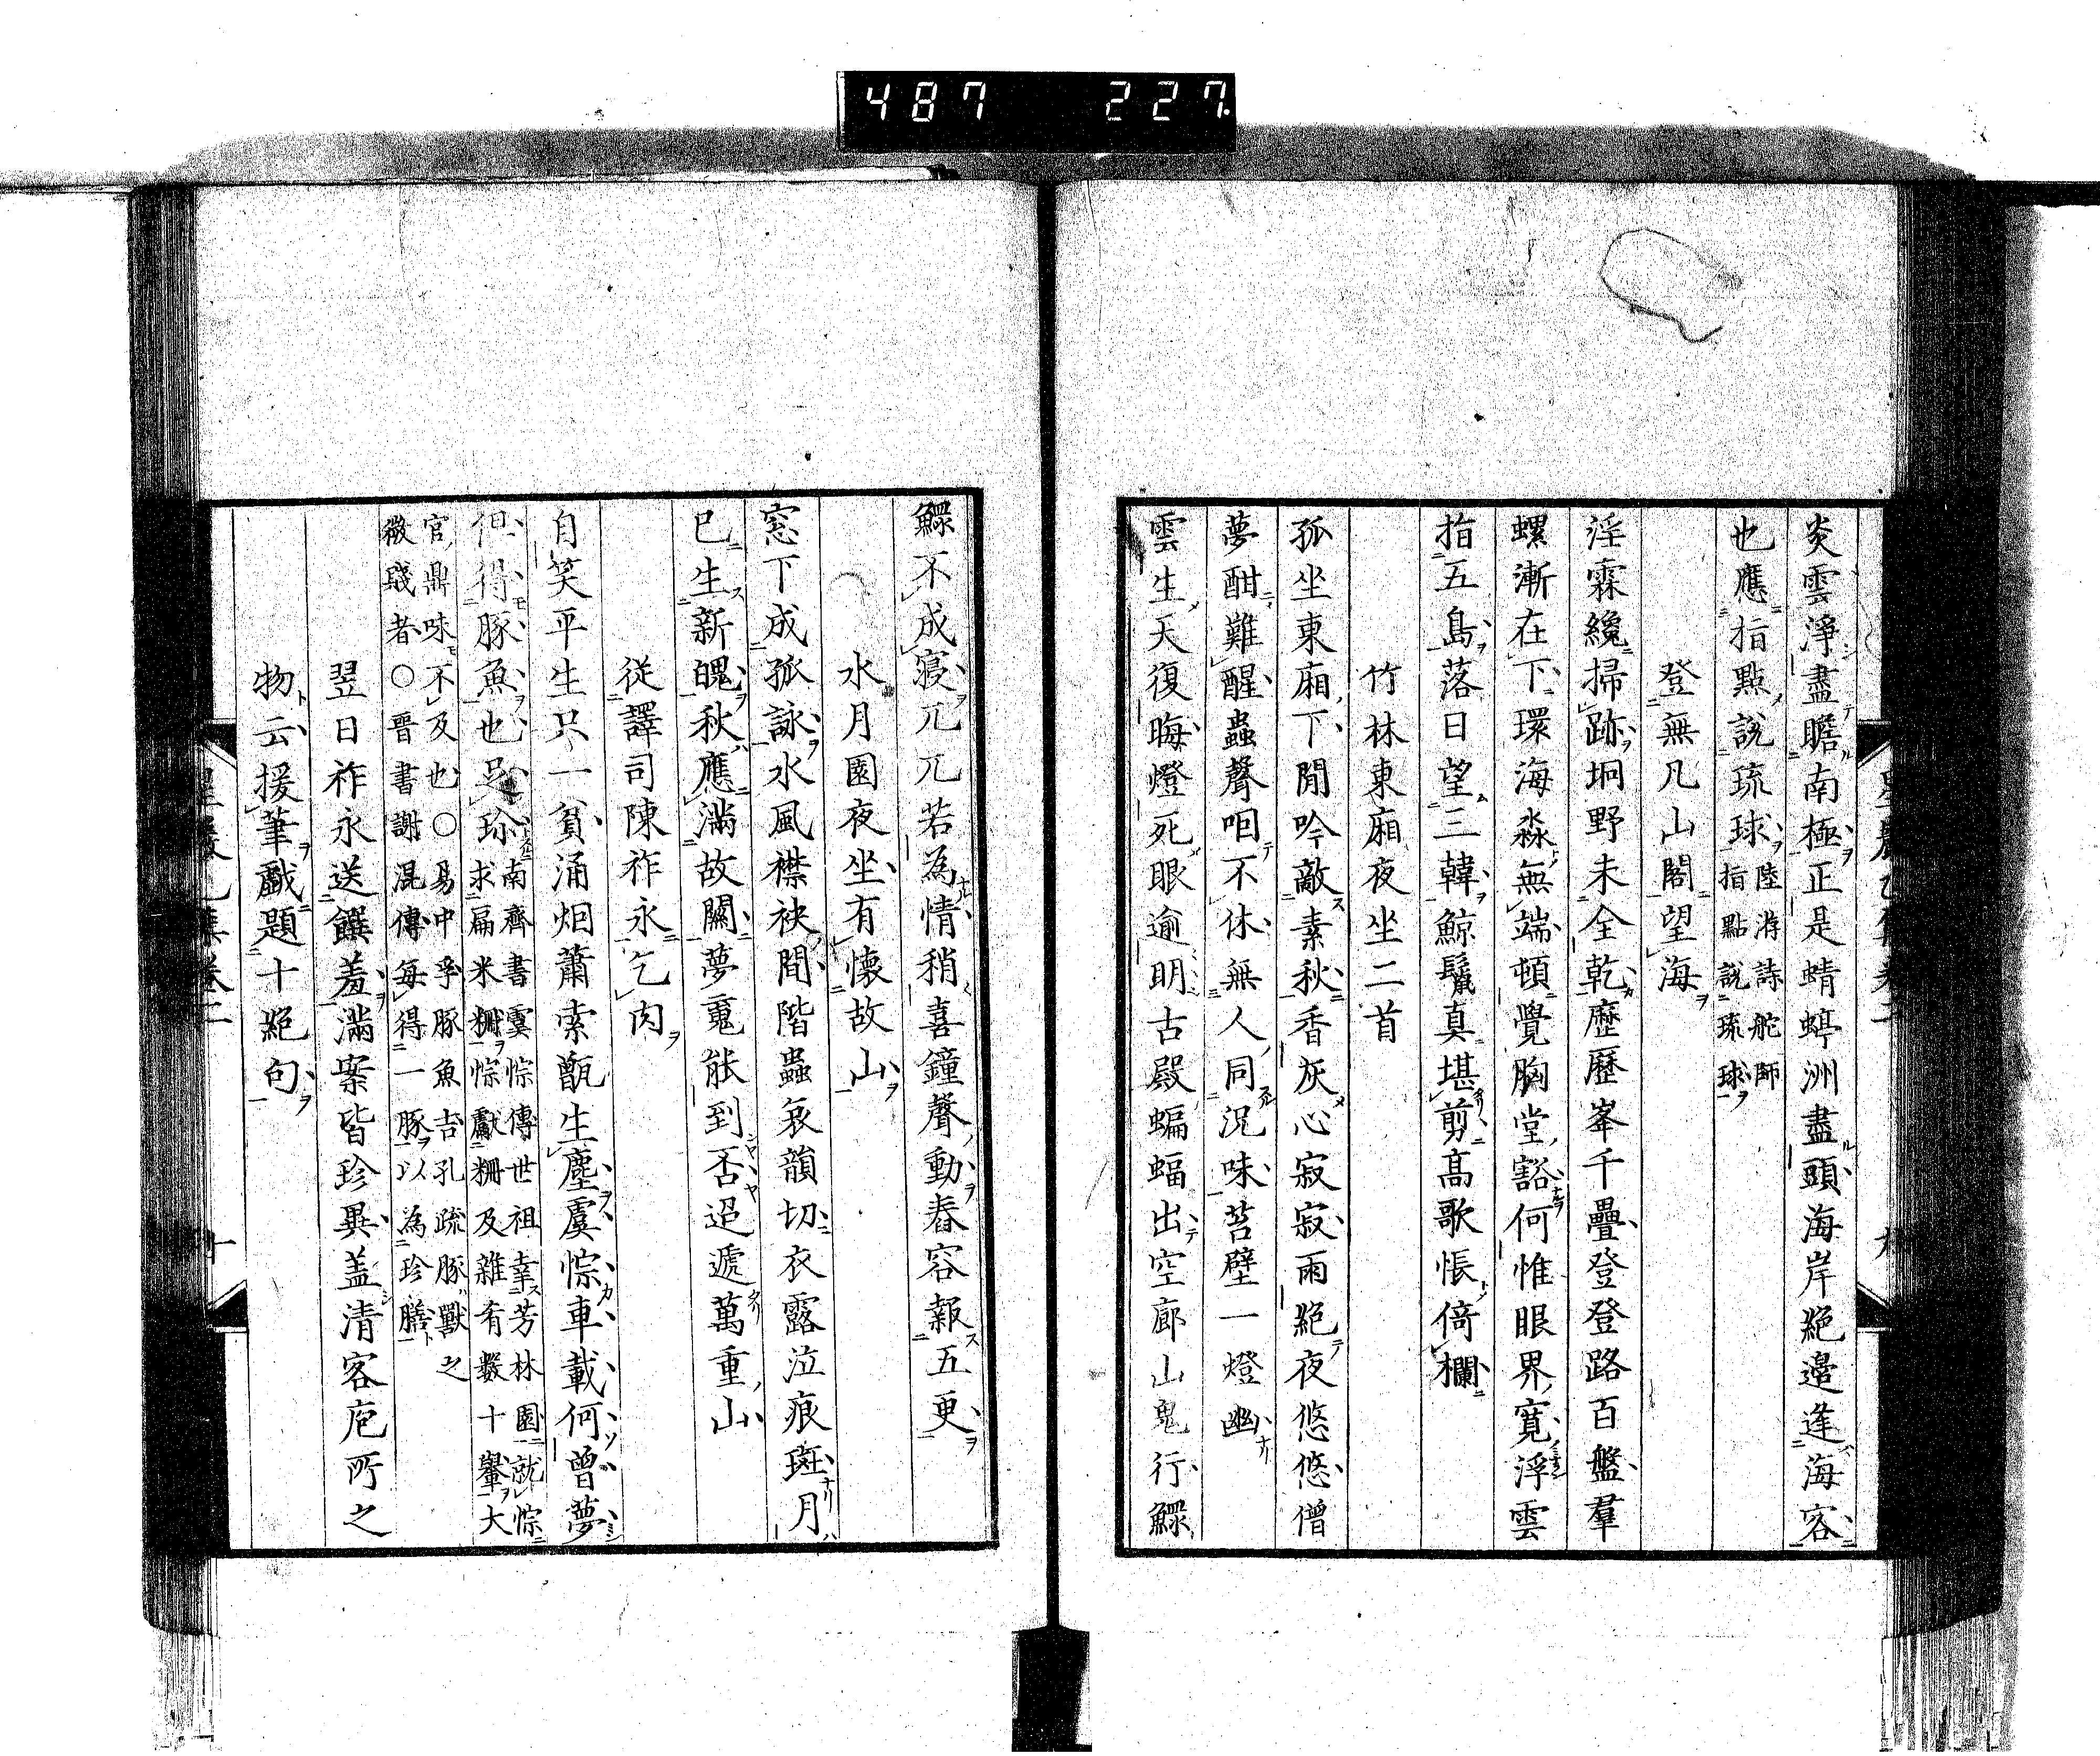 487 227
炎雲淨盡瞻南極正是蜻蜓洲盡頭海岸絕邊逢海客
也應指點說琉球陸游詩舵師指點說琉球
登無凡山閣望海
淫霖纔掃跡坰野未全乾歷歷峯千疊登登路百盤羣
螺漸在下環海淼無端頓覺胸堂豁何惟眼界寬浮雲
指五島落日望三韓鯨鬣真堪剪高歌悵倚欄
竹林東廂夜坐二首
孤坐東廂下閒吟敵素秋香灰心寂寂雨絕夜悠悠僧
夢酣難醒蟲聲咽不休無人同況味苔壁一燈幽
雲生天復晦燈死眼逾明古殿蝙蝠出空廊山鬼行鰥
鰥不成寢兀兀若為情稍喜鐘聲動舂容報五更
水月園夜坐有懷故山
窓下成孤詠水風襟袂間階蟲哀韻切衣露泣痕斑月
已生新魄秋應滿故關夢魂能到否迢遞萬重山
從譯司陳祚永乞肉
自笑平生只一貧涌烟蕭索甑生塵虞悰車載何曾夢
但得豚魚也足珍南齊書虞悰傳世祖幸芳林園就悰求扁米粣悰獻粣及雜肴數十轝大
官鼎味不及也○易中孚豚魚吉孔疏豚獸之微賤者○晉書謝混傳每得一豚以為珍膳
翌日祚永送饌羞滿案皆珍異盖清客庖所之
物云援筆戲題十絕句